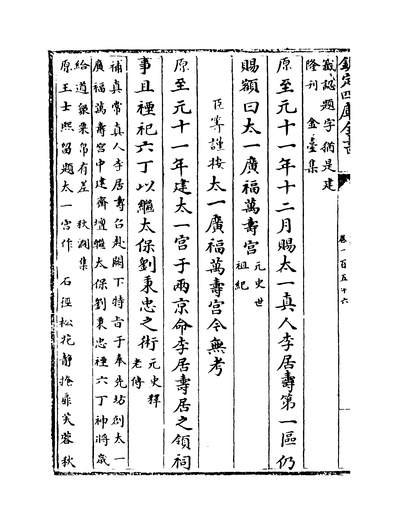 欽定四庫全書
卷一百五十六
認題字猶是建
隆刊 金臺集
原至元十一年十二月賜太一真人李居壽第一區仍
賜額曰太一廣福萬壽宮 元史世
祖紀
臣等謹按太一廣福萬壽宮今無考
原至元十一年建太一宮于兩京命李居壽居之領祠
事且禋祀六丁以繼太保劉秉忠之術 元史釋
老傳
補真常真人李居壽召赴闕下特旨于奉先坊創太一
廣福萬壽宮中建齋壇繼太保劉秉忠禋六丁神將歲
給道衆粟帛有差 秋澗集
原王士熙留題太一宮作 石徑松花靜掩扉芙蓉秋